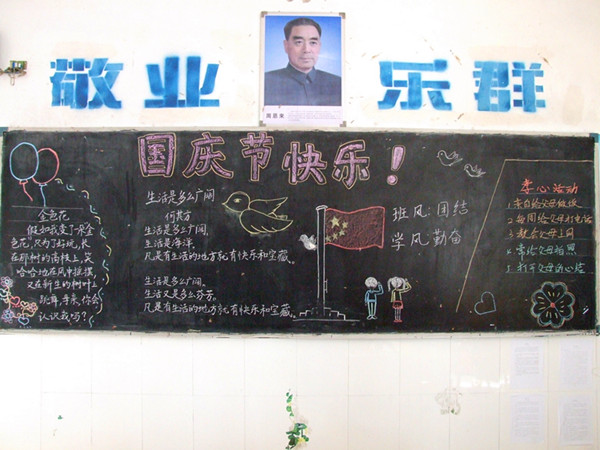 敬业
乐群
周恩来
国庆节快乐!
金色花
假如我变了一朵金
色花,只为了好玩,长
在那树的高枝上,笑
哈哈地在风中摇摆,
又在新生的树叶上
跳舞,妈妈,你会
认识我吗?
生活是多么广阔
何其芳
生活是多么广阔,
生活是海洋。
凡是有生活的地方就有快乐和宝藏。
生活是多么广阔,
生活又是多么芬芳。
凡是有生活的地方就有快乐和宝藏。
班风:团结
学风:勤奋
孝心活动
1.亲自给父母做饭
2.每周给父母打电话
3.教会父母上网
4.常给父母拍照
5.打开父母的心结